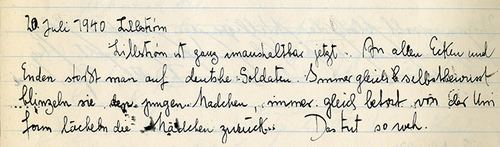 20 Juli 1940 Lillström
Lillström ist ganz unaushaltbar jetzt. An allen Ecken und
Enden stößt man auf deutsche Soldaten. Immer gleich selbstbewusst
blinzeln sie den jungen Mädchen, immer gleich betört von der Uni
form lächeln die Mädchen zurück.. Das tut so weh.